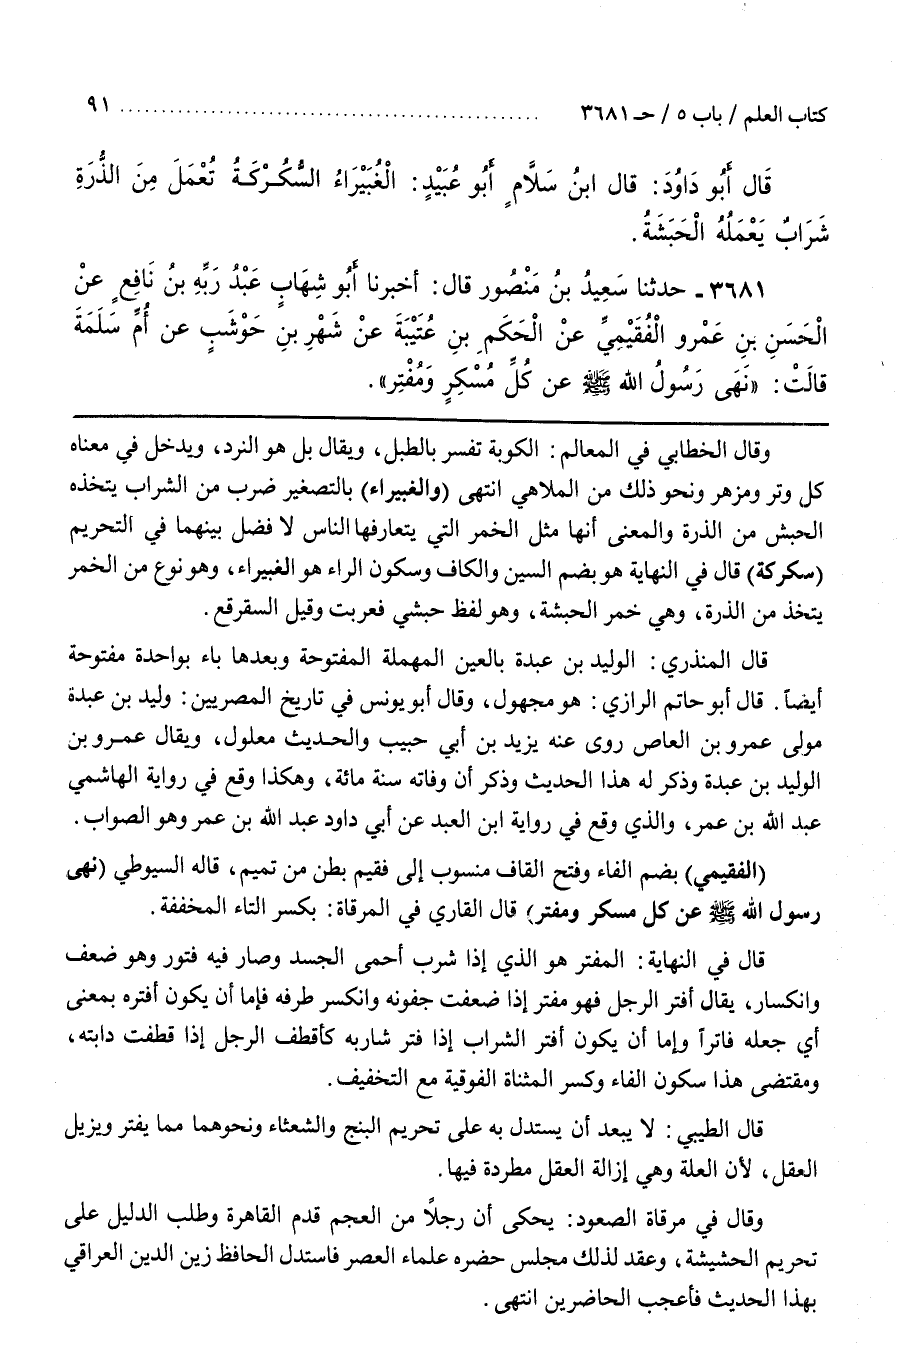 كتاب العلم / باب ٥ / حـ ٣٦٨١ ........................................ ٩١
قَال أَبُو دَاوُدَ: قال ابنُ سَلَّامٍ أَبُو عُبَيْدٍ: الْغُبَيْرَاءُ السُّكُرْكَةُ تُعْمَلَ مِنَ الذُّرَةِ
شَرَابٌ يَعْمَلُهُ الْحَبَشَةُ.
٣٦٨١ ـ حدثنا سَعِيدُ بنُ مَنْصُور قال: أخبرنا أَبُو شِهَابٍ عَبْدُ رَبِّهِ بنُ نَافِعٍ عنْ
الْحَسَنِ بنِ عَمْرو الْفُقَيْمِيِّ عنْ الْحَكَمِ بنِ عُتَيْبَةَ عنْ شَهْرِ بنِ حَوْشَبٍ عن أُمِّ سَلَمَةَ
قالَتْ: «نَهَى رَسُولُ الله ﷺ عن كلِّ مُسْكِرٍ وَمُفْتِر».
وقال الخطابي في المعالم: الكوبة تفسر بالطبل، ويقال بل هو النرد، ويدخل في معناه
كل وتر ومزهر ونحو ذلك من الملاهي انتهى (والغبيراء) بالتصغير ضرب من الشراب يتخذه
الحبش من الذرة والمعنى أنها مثل الخمر التي يتعارفها الناس لا فضل بينهما في التحريم
(سكركة) قال في النهاية هو بضم السين والكاف وسكون الراء هو الغبيراء، وهو نوع من الخمر
يتخذ من الذرة، وهي خمر الحبشة، وهو لفظ حبشي فعربت وقيل السقرقع.
قال المنذري: الوليد بن عبدة بالعين المهملة المفتوحة وبعدها باء بواحدة مفتوحة
أيضاً. قال أبو حاتم الرازي: هو مجهول، وقال أبو يونس في تاريخ المصريين: وليد بن عبدة
مولى عمرو بن العاص روى عنه يزيد بن أبي حبيب والحديث معلول، ويقال عمرو بن
الوليد بن عبدة وذكر له هذا الحديث وذكر أن وفاته سنة مائة، وهكذا وقع في رواية الهاشمي
عبد الله بن عمر، والذي وقع في رواية ابن العبد عن أبي داود عبد الله بن عمر وهو الصواب.
(الفقيمي) بضم الفاء وفتح القاف منسوب إلى فقيم بطن من تميم، قاله السيوطي (نهى
رسول الله ﷺ عن كل مسكر ومفتر) قال القاري في المرقاة: بكسر التاء المخففة.
قال في النهاية: المفتر هو الذي إذا شرب أحمى الجسد وصار فيه فتور وهو ضعف
وانكسار، يقال أفتر الرجل فهو مفتر إذا ضعفت جفونه وانكسر طرفه فإما أن يكون أفتره بمعنى
أي جعله فاتراً وإما أن يكون أفتر الشراب إذا فتر شاربه كأقطف الرجل إذا قطفت دابته،
ومقتضى هذا سكون الفاء وكسر المثناة الفوقية مع التخفيف.
قال الطيبي: لا يبعد أن يستدل به على تحريم البنج والشعثاء ونحوهما مما يفتر ويزيل
العقل، لأن العلة وهي إزالة العقل مطردة فيها.
وقال في مرقاة الصعود: يحكى أن رجلاً من العجم قدم القاهرة وطلب الدليل على
تحريم الحشيشة، وعقد لذلك مجلس حضره علماء العصر فاستدل الحافظ زين الدين العراقي
بهذا الحديث فأعجب الحاضرين انتهى.